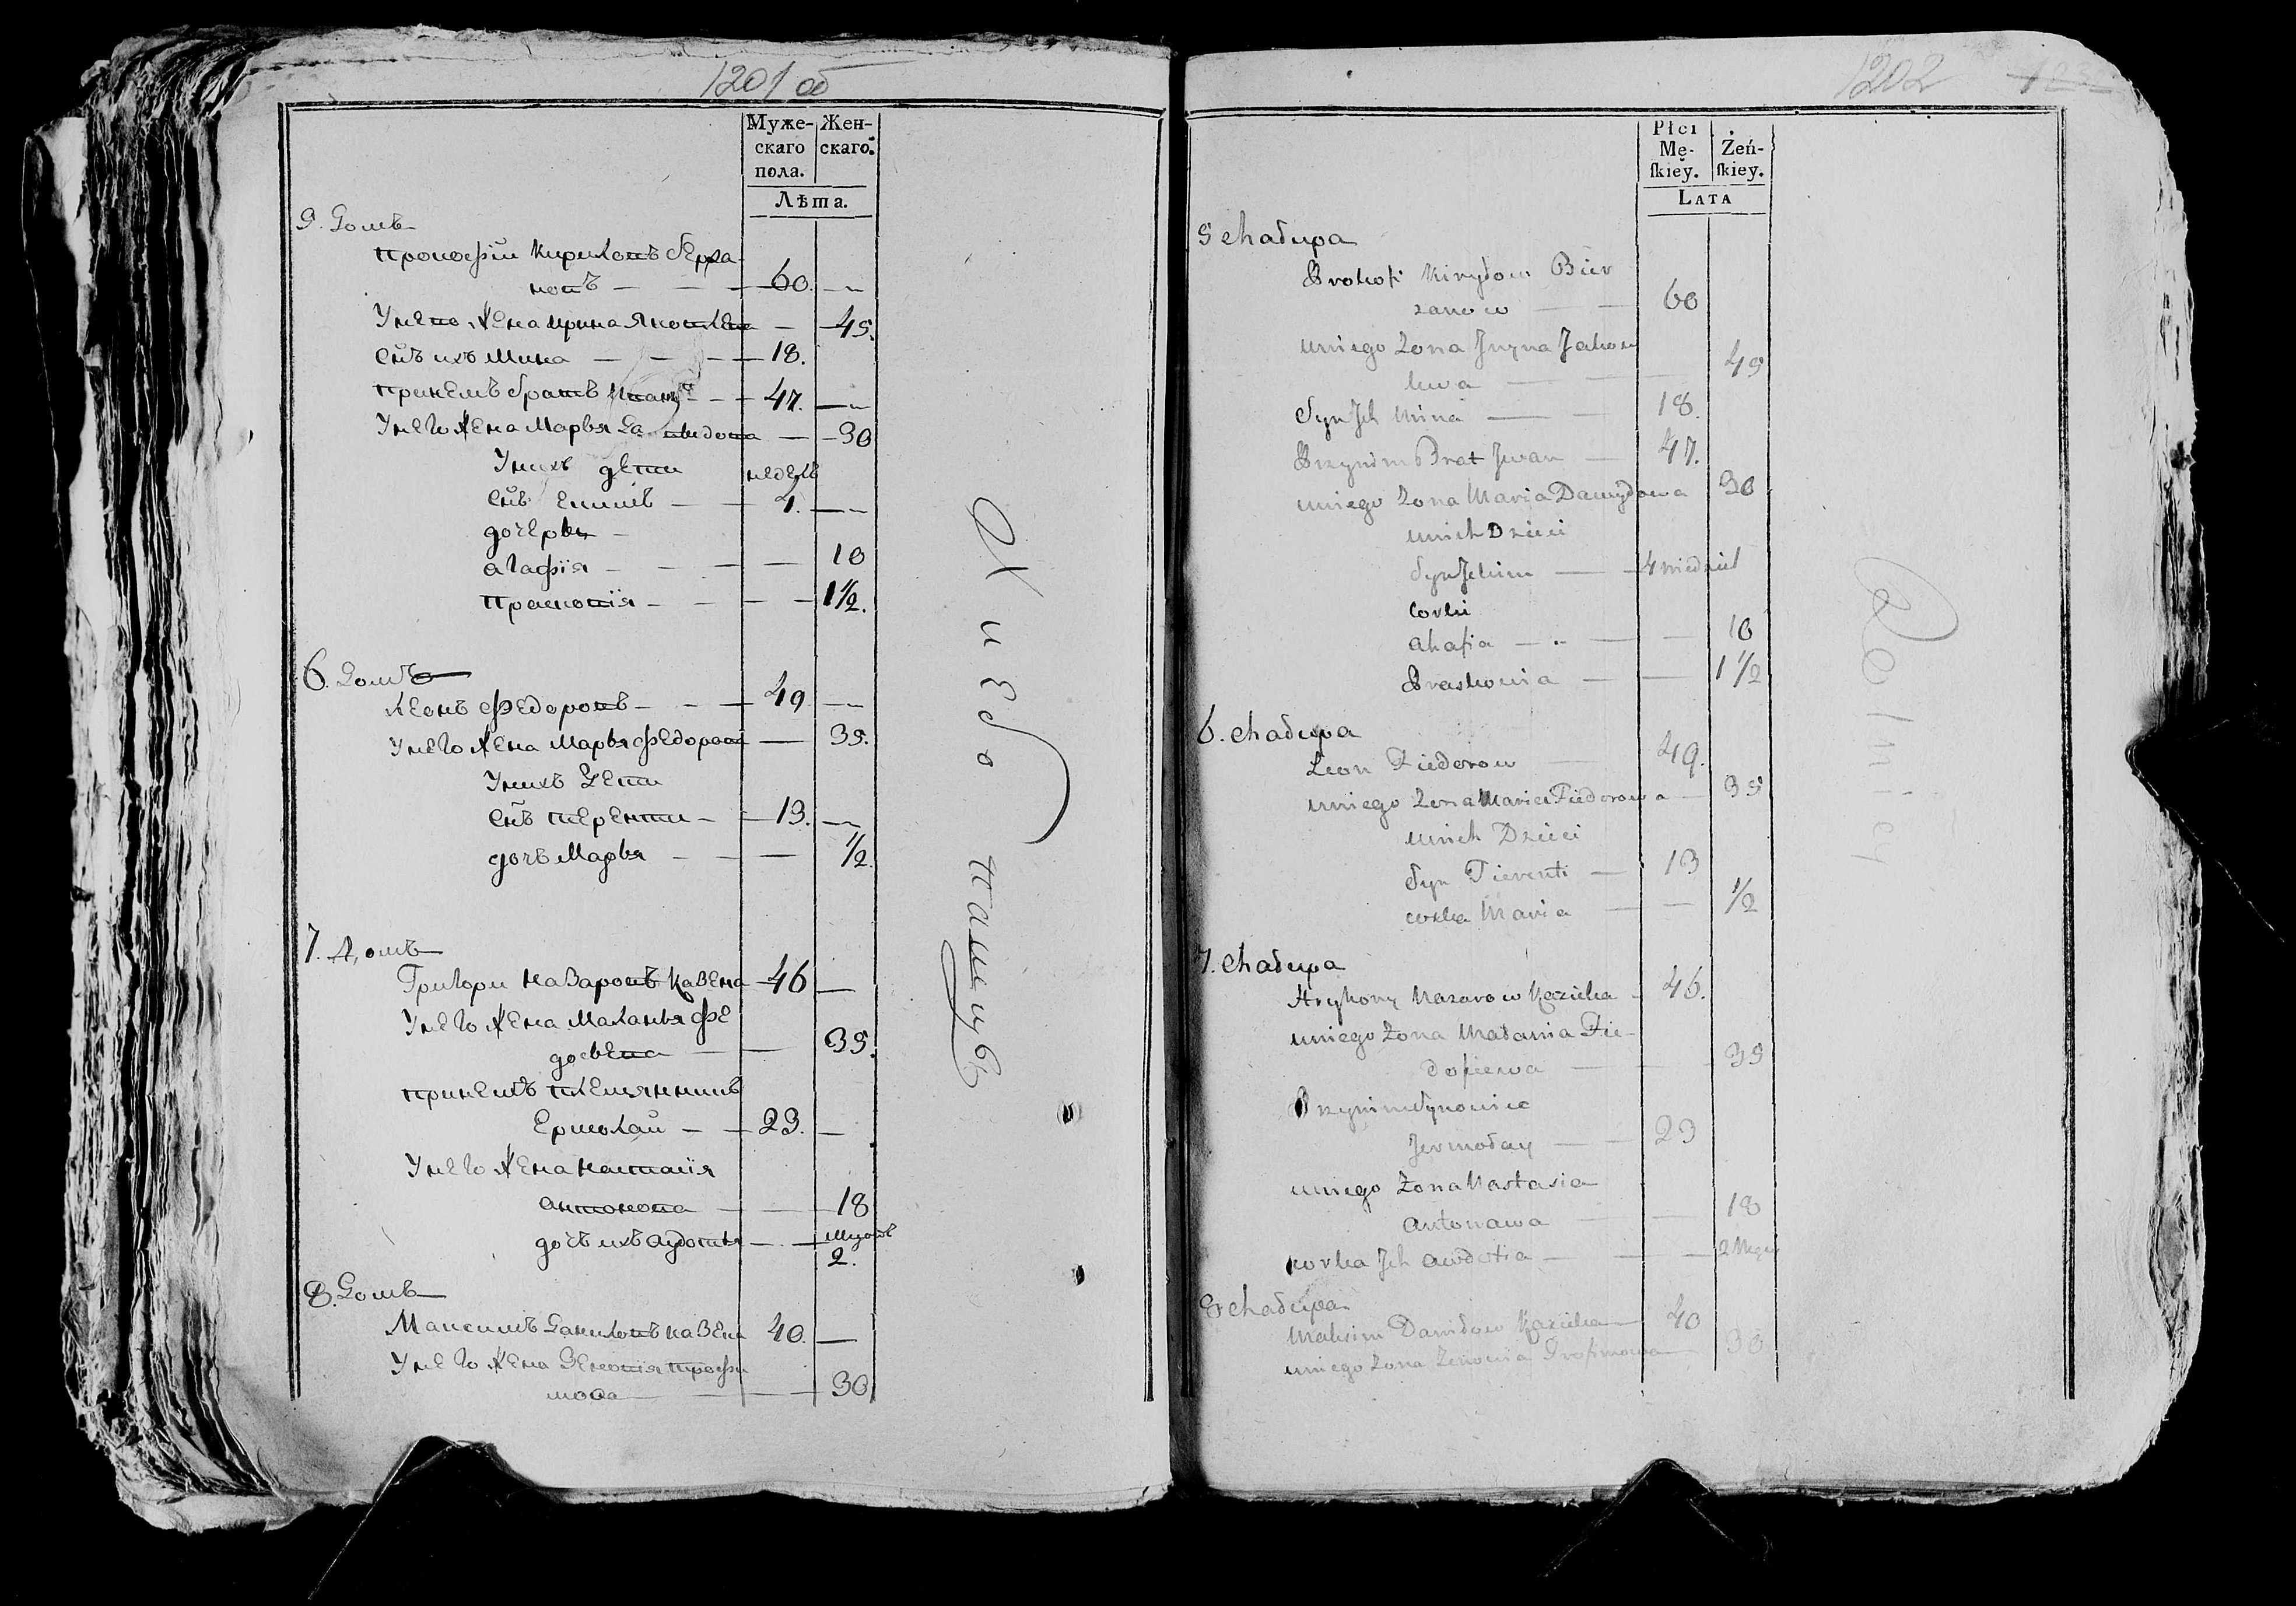 1201 об
Муже-
скаго
пола.
Жен-
скаго.
Лѣта.
5. Домъ
Прокофій Кириловъ Берза
новъ — 60. —
У него жена Ирина Яковлева — 45.
Сы҃ъ ихъ Мина — 18.
При немъ братъ Иванъ — 47. —
У него жена Марья Давыдова — 30
У нихъ дети недель
Сы҃ъ Екимъ — 4. —
дочерьи —
Агафія — 10
Прасковія — 1½.
6. Домъ
Леонъ Федоровъ — 49 —
У него жена Марья Федорова — 35.
У нихъ Дети
Сы҃ъ Терентий — 13. —
дочь Марья — ½.
7. Домъ
Григори Назаровъ Казека 46 —
У него жена Маланья Фе
досьева — 35.
При немъ племянникъ
Ермолай — 23. —
У него жена Настасія
Антонова — 18
дочь ихъ Авдотья — Мцовъ
2.
8. Домъ
Максимъ Даниловъ Казека 40. —
У него жена Зеновія Трофи
мова — 30
Живопашцъ
1202
Płci
Mę-
ſkiey.
Żeń-
ſkiey.
LATA
5 Chałupa
Prokofi Kiryłow Bier
zanow — 60
u niego Zona Jryna Jakow
lewa — 45
Syn Jch Mina — 18.
Przynim Brat Jwan — 47.
u niego Zona Maria Dawydowa 30
u nich Dzieci
Syn Jekim — 4 niedziel
Corki
Ahafia — 10
Praskowia — 1½
6. Chałupa
Leon Fiedorow — 49.
u niego Zona Maria Fiedorowa — 35
u nich Dzieci
Syn Tierenti — 13
corka Maria — ½
7. Chałupa
Hryhory Nazarow Kazieka 46.
u niego Zona Małania Fie-
dosiewa — 35
Przynim Synowiec
Jermołay — 23
u niego Zona Nastasia
Antonawa — 18
corka Jch Awdotia — 2 Mcy
8 Chałupa
Maksim Daniłow Kazieka — 40
u niego Zona Zenowia Trofimowa — 30
Rolnicy